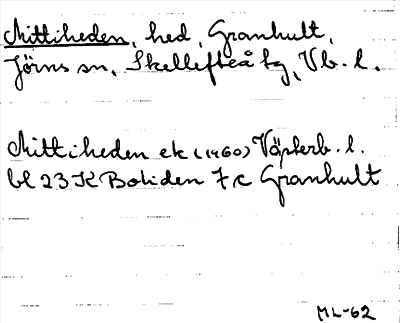 Mittiheden, hed, Granhult,
Jörns sn, Skellefteå tg, Vb. l.
Mittiheden ek (1960) Västerb. l.
bl 23 K Boliden 7 c Granhult
ML-62